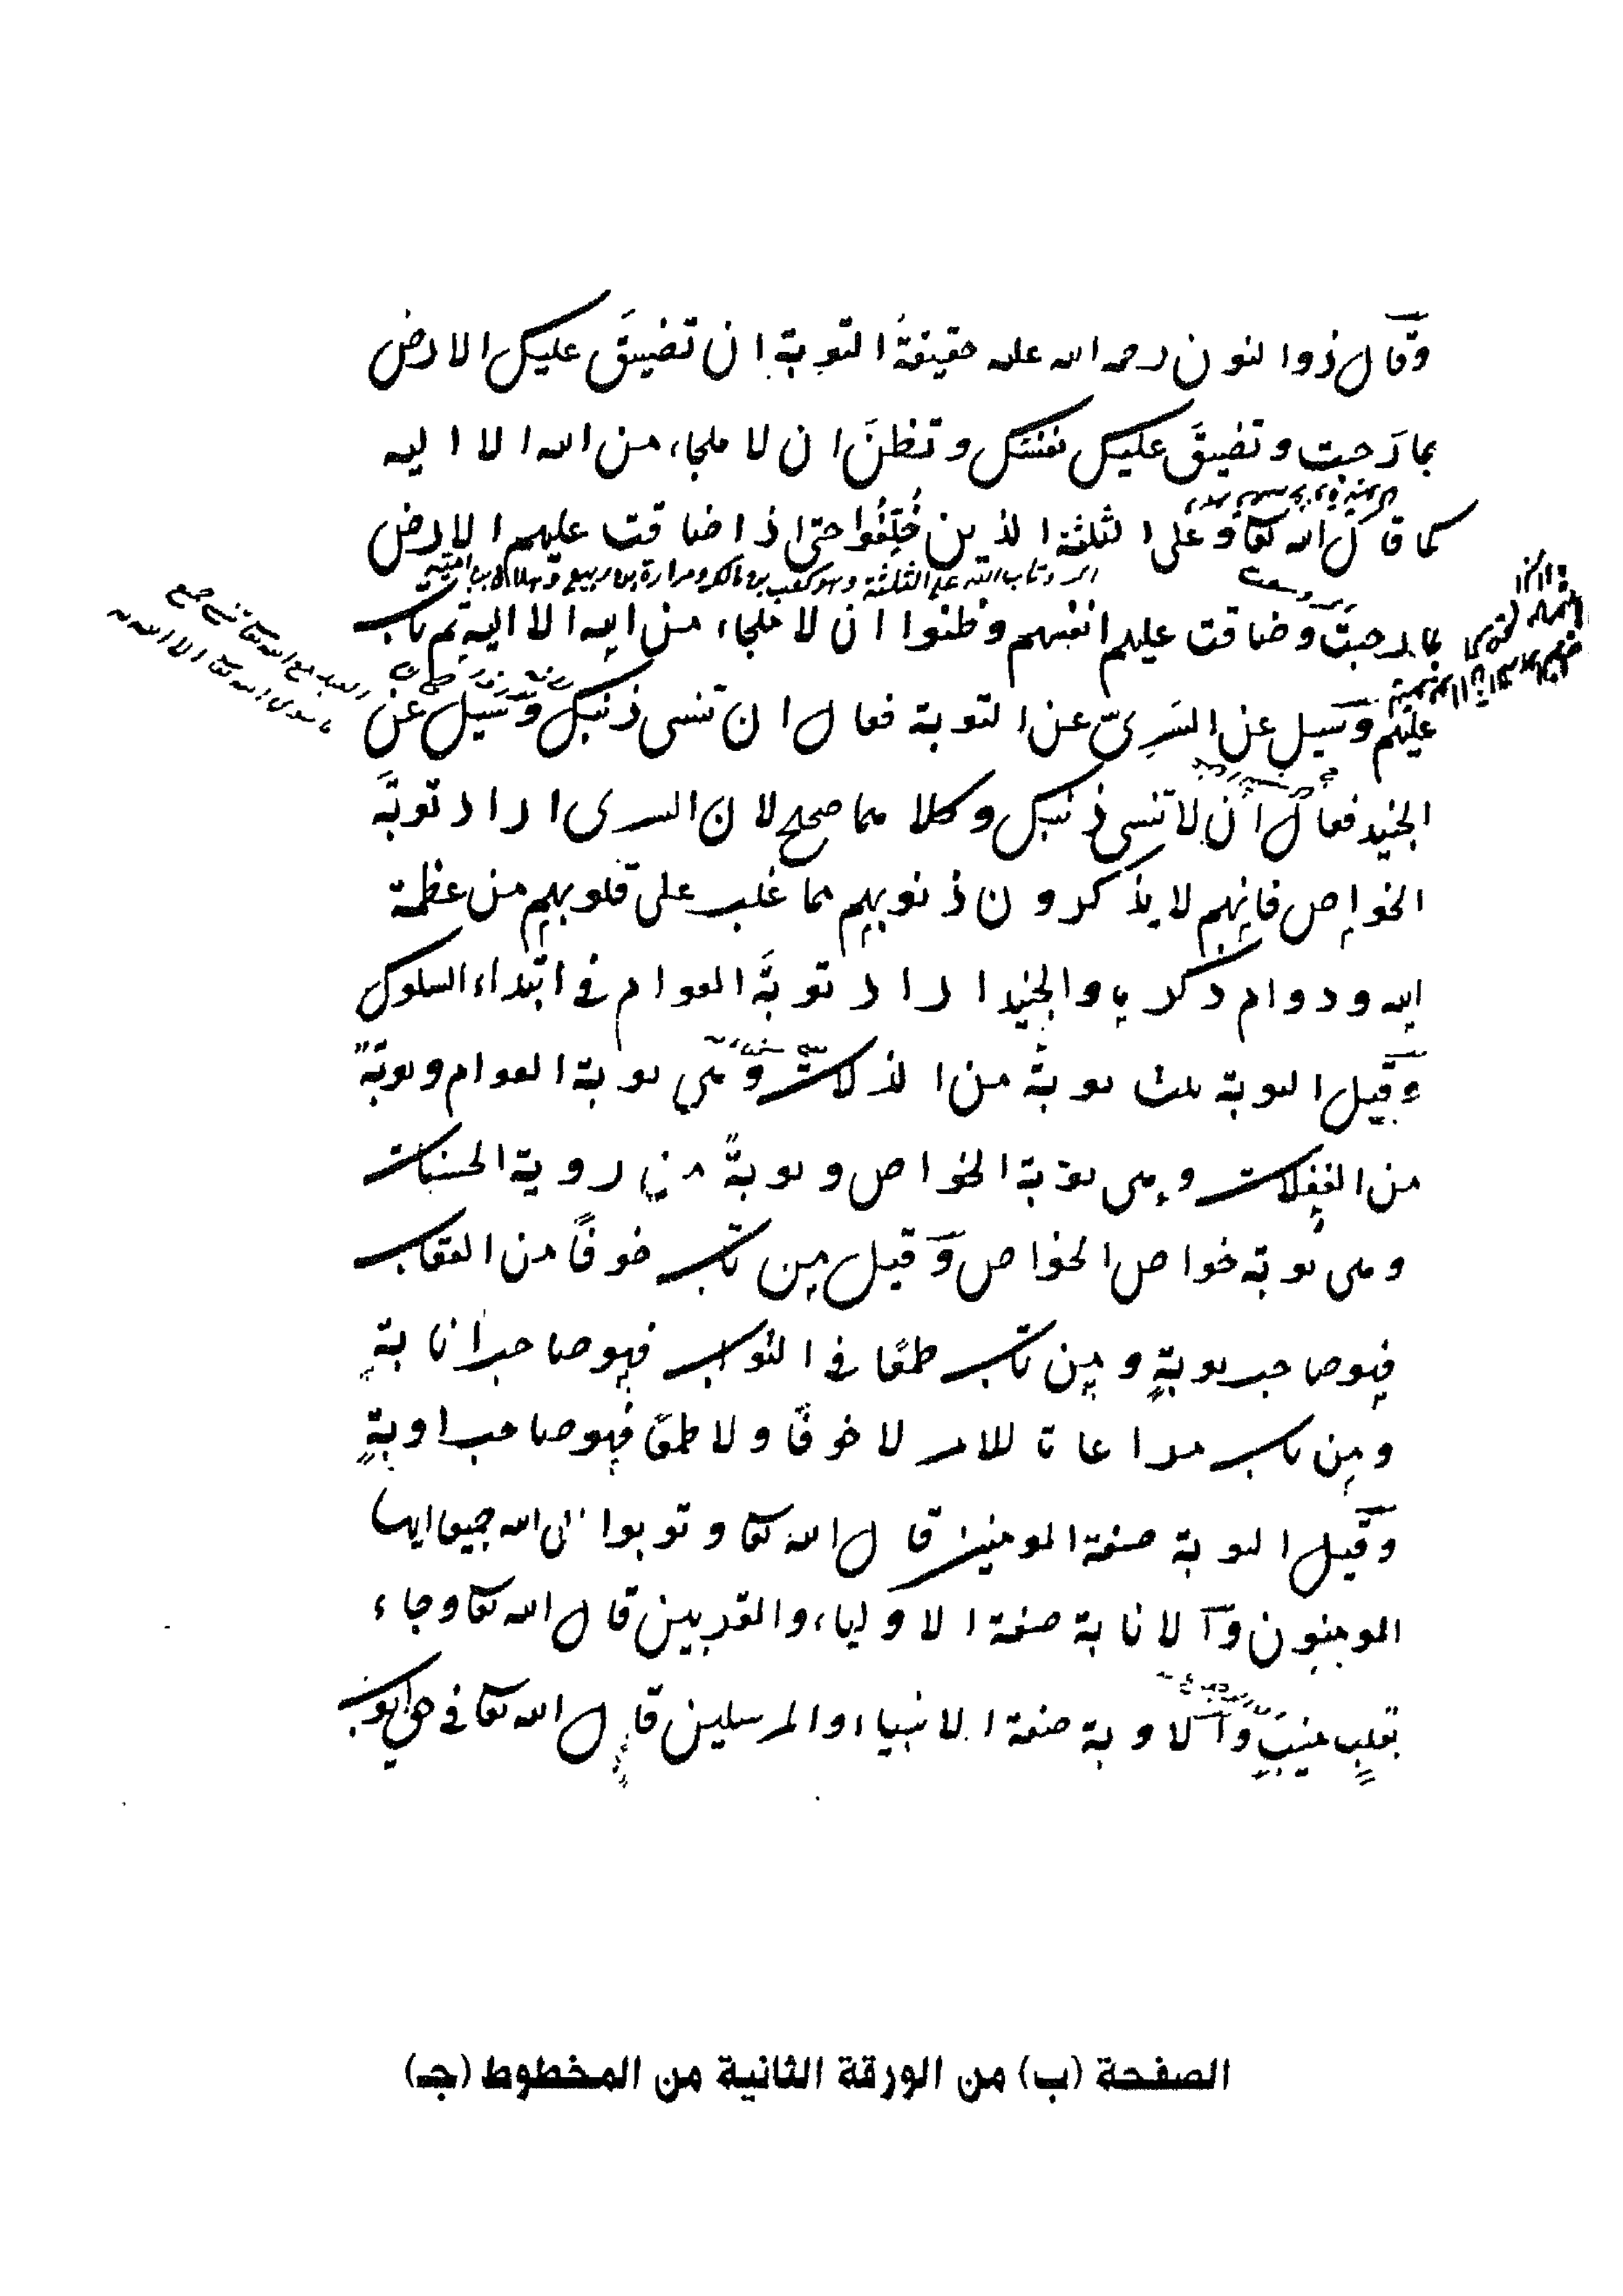 وقال ذوالنون رحمه الله عليه حقيقةُ التوبة ان تضيقَ عليك الارض
بما رَحبت وتضيقَ عليك نفسك وتظنَ ان لا ملجاء من الله الا اليه
كما قال الله تعا وعلى الثلثة الذين خُلِّفُوا حتى اذا ضاقت عليهم الارض
اى وتاب الله على الثلثة وهو كعب بن مالك ومرارة بن ربيع وهلال بن امية
بما رحبت وضاقت عليهم انفسهم وظنوا ان لا ملجاء من الله الا اليه ثم تاب
عليهم وسيل عن السَرِىّ عن التوبة فقال ان تنسى ذنبك وسيل عن
الجنيد فقال ان لا تنسى ذنبك وكلاهما صحيح لان السرى اراد توبةَ
الخواص فانهم لا يذكرون ذنوبهم مما غلب على قلوبهم من عظمة
الله ودوام ذكره والجنيد اراد توبةَ العوام فى ابتداء السلوك
وقيل التوبة ثلث توبةٌ من الذلات وهى توبة العوام وتوبةٌ
من الغفلات وهى توبة الخواص وتوبةٌ من روية الحسنات
وهى توبة خواص الخواص وقيل من تاب خوفًا من العقاب
فهو صاحب توبةٍ ومن تاب طمعًا فى الثواب فهو صاحب انابةٍ
ومن تاب مراعاة للامر لا خوفًا ولا طمعًا فهو صاحب اوبةٍ
وقيل التوبة صفة المومنين قال الله تعا وتوبوا الى الله جميعا ايها
المومنون والانابة صفة الاولياء والمقربين قال الله تعا وجاء
بقلبٍ منيبٍ والاوبة صفة الانبياء والمرسلين قال الله تعا فى حق ايوب
الصفحة (ب) من الورقة الثانية من المخطوط (جـ)